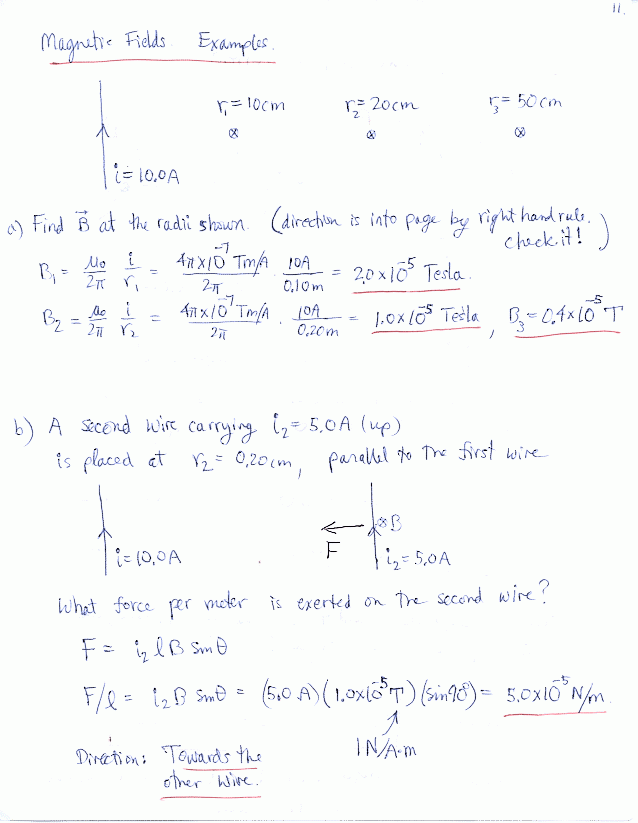 11.
Magnetic Fields. Examples.
r₁ = 10cm r₂ = 20cm r₃ = 50cm
⊗ ⊗ ⊗
i = 10.0A
a) Find B⃗ at the radii shown. (direction is into page by right hand rule. check it!)
B₁ = μ₀/2π i/r₁ = 4π×10⁻⁷ Tm/A / 2π · 10A/0.10m = 2.0×10⁻⁵ Tesla.
B₂ = μ₀/2π i/r₂ = 4π×10⁻⁷ Tm/A / 2π · 10A/0.20m = 1.0×10⁻⁵ Tesla, B₃ = 0.4×10⁻⁵ T
b) A second wire carrying i₂ = 5.0A (up)
is placed at r₂ = 0.20cm, parallel to the first wire
⊗B
F
i = 10.0A i₂ = 5.0A
What force per meter is exerted on the second wire?
F = i₂ l B sin θ
F/l = i₂ B sin θ = (5.0 A)(1.0×10⁻⁵ T)(sin 90°) = 5.0×10⁻⁵ N/m.
1 N/A·m
Direction: Towards the
other wire.